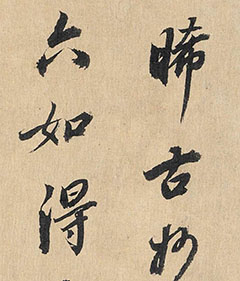 晞古妙
六如得